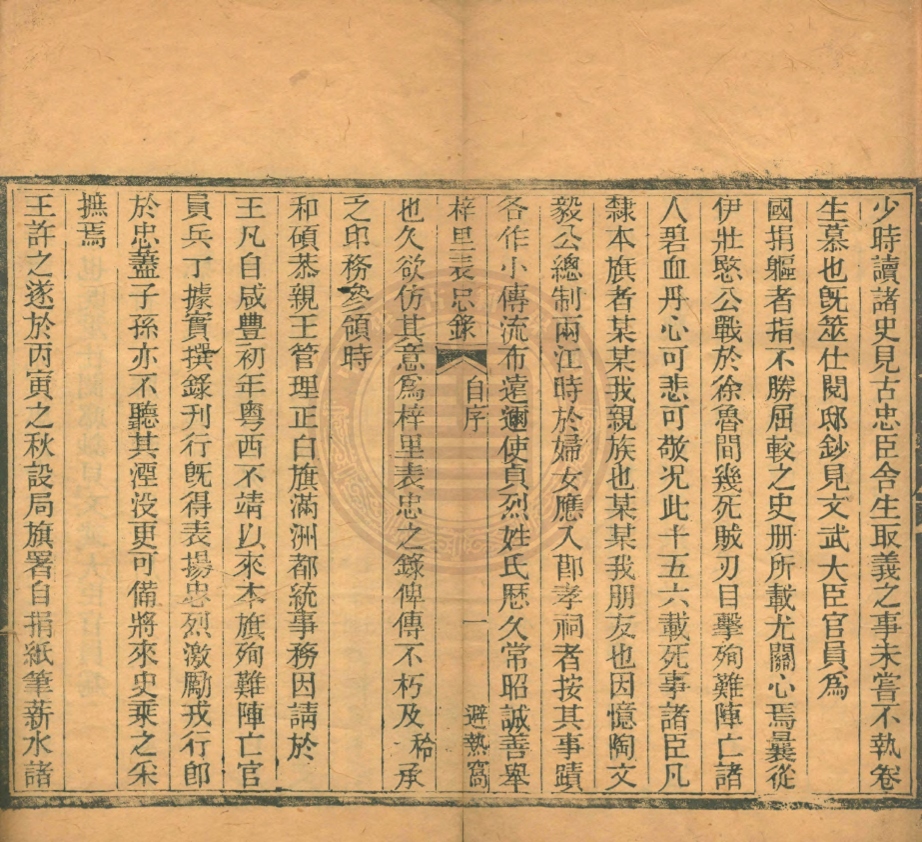 少時讀諸史見古忠臣舍生取義之事未嘗不執卷
生慕也旣筮仕閱邸鈔見文武大臣官員為
國捐軀者指不勝屈較之史册所載尤關心焉曩從
伊壯愍公戰於徐魯間幾死賊刃目擊殉難陣亡諸
人碧血丹心可悲可敬况此十五六載死事諸臣凡
隸本旗者某某我親族也某某我朋友也因憶陶文
毅公總制兩江時於婦女應入節孝祠者按其事蹟
各作小傳流布遠邇使貞烈姓氏歷久常昭誠善舉
梓里表忠錄 自序 一 避熱窩
也久欲仿其意爲梓里表忠之錄俾傳不朽及 稔承
之印務參領時
和碩恭親王管理正白旗滿洲都統事務因請於
王凡自咸豐初年粵西不靖以來本旗殉難陣亡官
員兵丁據實撰錄刊行旣得表揚忠烈激勵戎行卽
於忠藎子孫亦不聽其湮没更可備將來史乘之采
摭焉
王許之遂於丙寅之秋設局旗署自捐紙筆薪水諸